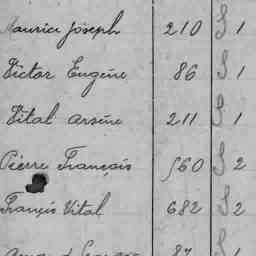 Maurice Joseph 210 S 1
Victor Eugène 86 S 1
Vital Arsène 211 S 1
Pierre François 560 S 2
François Vital 682 S 2
87 S 1